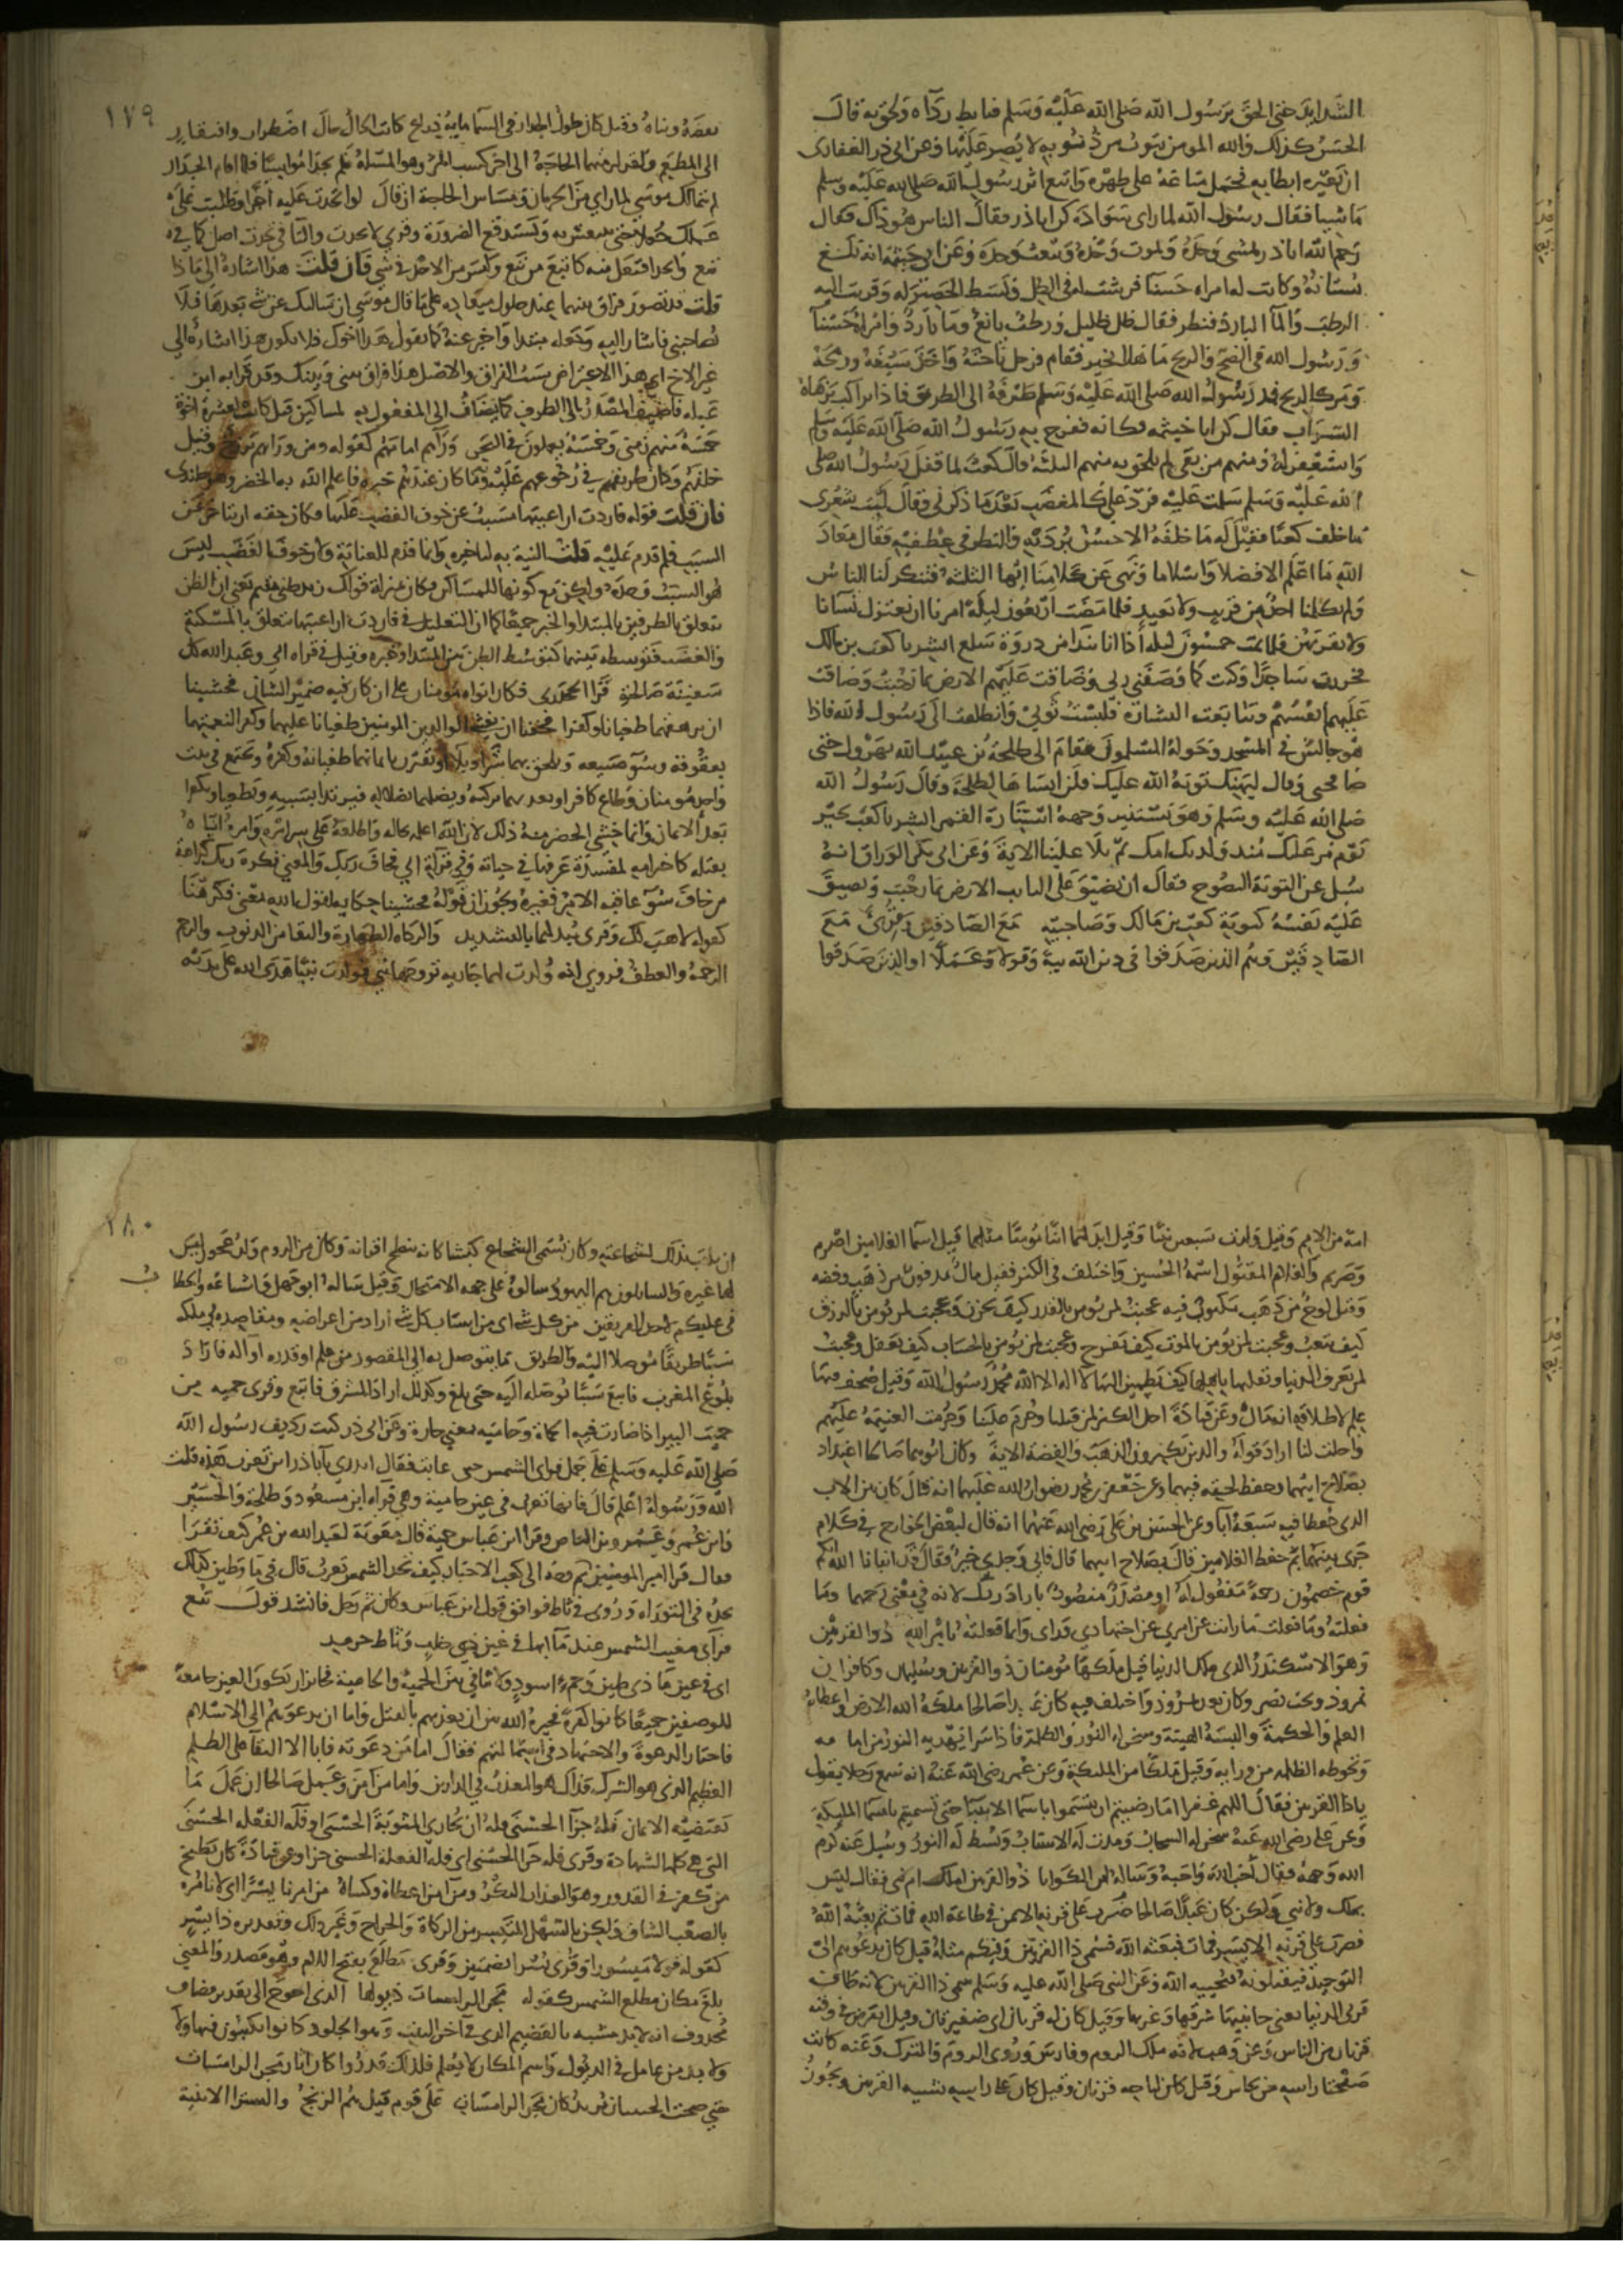 الشدايد حتى الحق برسول الله صلى الله عليه وسلم فابط رداه ولحق به قال
الحسن كذلك والله المومن يتوب من ذنوبه لا يصر عليها وعن ابي ذر الغفارى
ان بعيره ابطا به فحمل متاعه على ظهره واتبع اثر رسول الله صلى الله عليه وسلم
ماشيا فقال رسول الله لما راى سواده كن اباذر فقال الناس هو ذاك فقال
رحم الله اباذر يمشى وحده ويموت وحده ويبعث وحده وعن ابي خيثمة انه بلغ
بستانه وكانت له امراه حسنا فرشت له في الظل وبسطت الحصير له وقربت اليه
الرطب والمآ البارد فنظر فقال ظل ظليل ورطب يانع ومآ بارد وامراة حسنآ
ورسول الله في الضح والريح ما هذا بخير فقام فرحل ناقته واخذ سيفه ورمحه
ومر كالريح فمد رسول الله صلى الله عليه وسلم طرفه الى الطريق فاذا براكب يزهاه
السراب فقال كن ابا خيثمه فكانه ففرح به رسول الله صلى الله عليه وسلم
واستغفر له ومنهم من بقى لم يلحق به منهم الثلثه قال كعب لما قفل رسول الله صلى
الله عليه وسلم سلمت عليه فرد على كالمغضب بعد ما ذكرني وقال ليت شعري
ما خلف كعبا فقيل له ما خلفه الا حسن برديه والنظر في عطفيه فقال معاذ
الله ما اعلم الا فضلا واسلاما ونهى عن كلامنا ايها الثلثه فتنكر لنا الناس
ولم يكلمنا احد من قريب ولا بعيد فلما مضت اربعون ليلة امرنا ان نعتزل نسانا
ولا نقربهن فلما تمت خمسون ليله اذا انا بندا من دروة سلع ابشر يا كعب بن مالك
فخررت ساجدا وكنت كما وصفني ربي وضاقت عليهم الارض بما رحبت وضاقت
عليهم انفسهم وتتابعت البشارة فلبست ثوبي وانطلقت الى رسول الله فاذا
هو جالس في المسجد وحوله المسلمون فقام الى طلحة بن عبيد الله يهرول حتى
صافحني وقال ليهنك توبة الله عليك فلن انساها لطلحة وقال رسول الله
صلى الله عليه وسلم وهو يستنير وجهه استنارة القمر ابشر يا كعب بخير
يوم مر عليك منذ ولدتك امك ثم تلا علينا الاية وعن ابي بكر الوراق انه
سيل عن التوبة النصوح فقال ان تضيق على التايب الارض بما رحبت وتضيق
عليه نفسه كتوبة كعب بن مالك وصاحبيه مع الصادقين وقرئ مع
الصادقين وهم الذين صدقوا في دين الله نية وقولا وعملا او الذين صدقوا
١٧٩
بعضه وبناه وقيل كان طول الجدار في السما ماية ذراع كانت الحال حال اضطرار وافتقار
الى المطعم ولقد لزمتهما الحاجة الى اخر كسب المرء وهو المسلة فلم يجدا مواسيا فلما اقام الجدار
لم يتمالك موسى لما راى من الحرمان ومساس الحاجة ان قال لو اتخذت عليه اجرا وطلبت على
عملك جعلا حتى ننتعش به ونستدفع الضرورة وقرى لتخدت والتا في تخذت اصل كما في
تبع واتخذ افتعل منه كاتبع من تبع وليس من الاخذ في شي فان قلت هذا اشارة الى ماذا
قلت قد تصور فراق بينهما عند حلول ميعاده على ما قال موسى ان سالتك عن شي بعدها فلا
تصاحبني فاشار اليه وجعله مبتدا واخبر عنه كما تقول هذا اخوك فلا يكون هذا اشارة الى
غير الاخ اي هذا الاعتراض سبب الفراق والاصل هذا فراق بيني وبينك وقد قرا به ابن
عبله فاضيف المصدر الى الظرف كما يضاف الى المفعول به لمساكين قيل كانت لعشرة اخوة
خمسة منهم زمنى وخمسة يعملون في البحر ورآهم امامهم كقوله ومن ورايهم برزخ وقيل
خلفهم وكان طريقهم في رجوعهم عليه وما كان عندهم خبره فاعلم الله به الخضر وهو جلندى
فان قلت قوله فاردت ان اعيبها مسبب عن خوف الغصب عليها فكان حقه ان يتاخر عن
السبب فلم قدم عليه قلت النية به التاخير وانما قدم للعناية ولان خوف الغصب ليس
هو السبب وحده ولكن مع كونها للمساكين فكان بمنزلة قولك زيد ظني مقيم يعني ان الظن
يتعلق بالطرفين بالمبتدا والخبر جميعا كما ان التعليل في فاردت ان اعيبها يتعلق بالمسكنة
والغصب فتوسطه بينهما كتوسط الظن بين المبتدا وخبره وقيل في قراة ابي وعبد الله كل
سفينة صالحة قرا الجحدرى فكان ابواه مومنان على ان كان فيه ضمير الشان فخشينا
ان يرهقهما طغيانا وكفرا فخفنا ان يغشى الوالدين المومنين طغيانا عليهما وكفرا لنعمتهما
بعقوقه وسو صنيعه ويلحق بهما شرا وبلاء او يقترن بايمانهما طغيانه وكفره فيجتمع في بيت
واحد مومنان وطاغ كافر او يعديهما بدايه ويضلهما بضلاله فيرتدا بسببه ويطغيا ويكفرا
بعد الايمان وانما خشى الخضر منه ذلك لان الله اعلمه بحاله واطلعه على سرائره وامره اياه
بقتله كاخترامه لمفسدة عرفها في حياته وفي قرآة ابي فخاف ربك والمعنى فكره ربك كراهة
من خاف سوء عاقبه الامر فغيره ويجوز ان قوله فخشينا حكاية لقول الله بمعنى فكرهنا
كقوله لاهب لك وقرى يبدلهما بالتشديد والزكاة الطهارة والنقا من الذنوب والرحم
الرحمة والعطف وروي انه ولدت لهما جارية تزوجها نبي فولدت نبيا هدى الله على يديه
امة من الامم وقيل ولدت سبعين نبيا وقيل ابدلهما ابنا مومنا مثلهما قيل اسما الغلامين اصرم
وصريم والغلام المقتول اسمه الحسين واختلف في الكنز فقيل مال مدفون من ذهب وفضه
وقيل لوح من ذهب مكتوب فيه عجبت لمن يومن بالقدر كيف يحزن وعجبت لمن يومن بالرزق
كيف يتعب وعجبت لمن يومن بالموت كيف يفرح وعجبت لمن يومن بالحساب كيف يغفل وعجبت
لمن يعرف الدنيا وتقلبها باهلها كيف يطمين اليها لا اله الا الله محمد رسول الله وقيل صحف فيها
علم لاطلاقه انه مال وعن قتادة احل الكنز لمن قبلنا وحرم علينا وحرمت الغنيمة عليهم
واحلت لنا اراد قوله والذين يكنزون الذهب والفضة الاية وكان ابوهما صالحا اعتداد
بصلاح ابيهما وحفظ لحقه فيهما وعن جعفر بن محمد رضوان الله عليهما انه قال كان بين الاب
الذي حفظا فيه سبعة آبا وعن الحسن بن على رضي الله عنهما انه قال لبعض الخوارج في كلام
جرى بينهما بم حفظ الغلامين قال بصلاح ابيهما قال فابي وجدي خير فقال قد انبانا الله انكم
قوم خصمون رحمة مفعول له او مصدر منصوب باراد ربك لانه في معنى رحمهما وما
فعلته وما فعلت ما رايت عن امري عن اجتهادي وراى وانما فعلته بامر الله ذو القرنين
وهو الاسكندر الذى ملك الدنيا قيل ملكها مومنان ذو القرنين وسليمان وكافران
نمروذ وبخت نصر وكان بعد نمروذ واختلف فيه كان عبدا صالحا ملكه الله الارض واعطاه
العلم والحكمة والبسه الهيبة وسخر له النور والظلمة فاذا سرا يهديه النور من امامه
وتحوطه الظلمه من ورايه وقيل ملكا من الملئكة وعن عمر رضي الله عنه انه سمع رجلا يقول
ياذا القرنين فقال اللهم غفرا اما رضيتم ان تتسموا باسما الانبيآ حتى تسميتم باسما المليكة
وعن على رضي الله عنه سخر له السحاب ومدت له الاسباب وبسط له النور وسيل عنه كرم
الله وجهه فقال احب الله فاحبه وساله ابن الكوا ما ذو القرنين املك ام نبي فقال ليس
بملك ولا نبي ولكن كان عبدا صالحا ضرب على قرنه الايمن في طاعة الله فمات ثم بعثه الله
فضرب على قرنه الايسر فمات فبعثه الله فسمى ذا القرنين وفيكم مثله قيل كان يدعوهم الى
التوحيد فيقتلونه فيحييه الله وعن النبي صلى الله عليه وسلم سمى ذا القرنين لانه طاف
قرني الدنيا يعني جانبيها شرقها وغربها وقيل كان له قرنان اى ضفيرتان وقيل انقرض في وقته
قرنان من الناس وعن وهب لانه ملك الروم وفارس وروى الروم والترك وعنه كانت
صفحتا راسه من نحاس وقيل كان لتاجه قرنان وقيل كان على راسه ما يشبه القرنين ويجوز
١٨٠
ان يلقب بذلك لشجاعته وكان يسمى الشجاع كبشا كانه ينطح اقرانه وكان من الروم ولد عجوز ليس
لها غيره والسايلون هم اليهود سالوه على جهة الامتحان وقيل ساله ابو جهل واشياعه والخطاب
في عليكم لاحد الفريقين من كل شي اى من اسباب كل شي اراد من اغراضه ومقاصده في ملكه
سببا طريقا موصلا اليه والطريق ما يتوصل به الى المقصود من علم او قدره او آلة فاراد
بلوغ المغرب فاتبع سببا يوصله اليه حتى بلغ وكذلك اراد المشرق فاتبع وقرى حميه من
حميت البير اذا صارت فيه الحماة وحاميه بمعنى حارة وعن ابى ذر كنت رديف رسول الله
صلى الله عليه وسلم على جمل فراى الشمس حين غابت فقال اتدري يا اباذر اين تغرب هذه قلت
الله ورسوله اعلم قال فانها تغرب في عين حامية وهي قراة ابن مسعود وطلحة والحسن
وابن عمر وعمرو بن العاص وقرا ابن عباس حمئة قال معوية لعبد الله بن عمر كيف تقرا
فقال كما قرا امير المومنين ثم وجه الى كعب الاحبار كيف تجد الشمس تغرب قال في مآ وطين كذلك
نجده في التوراة وروى في ثاط فوافق قول ابن عباس وكان ثم رجل فانشد قول تبع
فرآى مغيب الشمس عند مآبها في عين ذي خلب وثاط حرمد
اى في عين ما ذى طين وحمء اسود ولا تنافي بين الحمئة والحامية فجايز ان تكون العين جامعة
للوصفين جميعا كانوا كفرة فخيره الله بين ان يعذبهم بالقتل واما ان يدعوهم الى الاسلام
فاختار الدعوة والاجتهاد في استمالتهم فقال اما من دعوته فابا الا البقا على الظلم
العظيم الذي هو الشرك فذاك هو المعذب في الدارين واما من آمن وعمل صالحا ان عمل ما
يقتضيه الايمان فله جزآ الحسنى وله ان يجازى المثوبة الحسنى او فله الفعله الحسنى
التي هي كلمة الشهادة وقرى فله جزا الحسنى اى فله الفعلة الحسنى جزا وعن قتادة كان يطبخ
من كفر في القدور وهو العذاب النكر ومن آمن اعطاه وكساه من امرنا يسرا اى لا نامره
بالصعب الشاق ولكن بالسهل المتيسر من الزكاة والخراج وغير ذلك وتقديره ذا يسر
كقوله قولا ميسورا وقرى يسرا بضمتين وقرى مطلع بفتح اللام وهو مصدر والمعنى
بلغ مكان مطلع الشمس كقوله مجر الرامسات ذيولها الذى احوج الى تقدير مضاف
محذوف انه لا بد
ولا بد من عامل في الذيول واسم المكان لا يعمل فلذلك قدروا كان اثار مجر الرامسات
على قوم قيل هم الزنج والستر الابنية